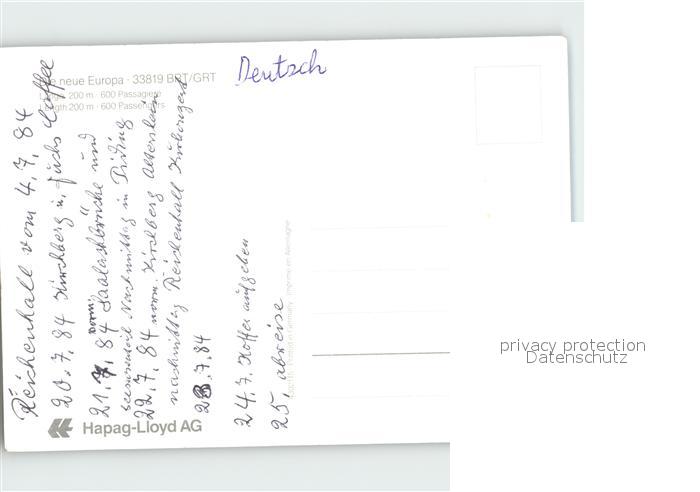 neue Europa · 33819 BRT/GRT
Länge 200 m · 600 Passagiere
Length 200 m · 600 Passengers
Deutsch
Reichenhall vom 4.7.84
20.7.84 Kirchberg u. Fuchs Coffee
21.7.84 vorm. und
Nachmittag in Piding
22.7.84 vorm. Kirchberg
nachmittag Reichenhall
23.7.84
24.7. Koffer aufgeben
25. abreise
Hapag-Lloyd AG
privacy protection
Datenschutz